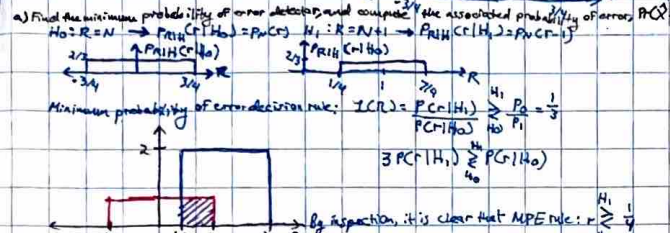 a) Find the minimum probability of error detector, and compute the associated probability of error, Pr(
H₀: R=N → P_R|H(r|H₀) = P_N(r) H₁: R=N+1 → P_R|H(r|H₁) = P_N(r-1)
2/3 P_R|H(r|H₀) R -3/4 3/4
2/3 P_R|H(r|H₁) R 1/4 1 7/4
Minimum probability of error decision rule: L(R) = P(r|H₁)/P(r|H₀) ≷ P₀/P₁ = 1/3
H₁
H₀
3 P(r|H₁) ≷ P(r|H₀)
H₁
H₀
2
By inspection, it is clear that MPE rule: r ≷ 1/4
H₁